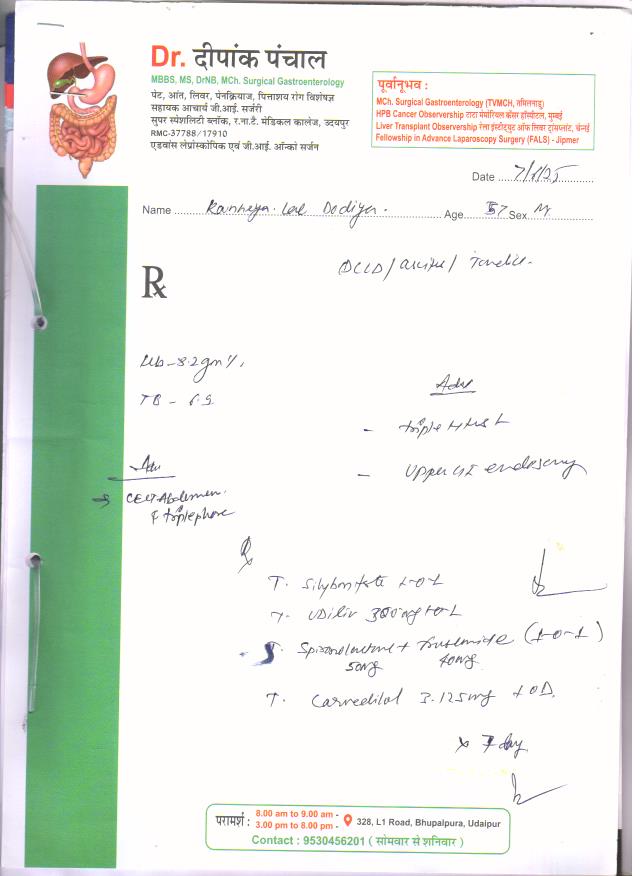 Dr. दीपांक पंचाल
MBBS, MS, DrNB, MCh. Surgical Gastroenterology
पेट, आंत, लिवर, पेनक्रियाज, पित्ताशय रोग विशेषज्ञ
सहायक आचार्य जी.आई. सर्जरी
सुपर स्पेशलिटी ब्लॉक, र.ना.टै. मेडिकल कालेज, उदयपुर
RMC-37788 / 17910
एडवांस लेप्रोस्कोपिक एवं जी.आई. ऑन्को सर्जन
पूर्वानूभव :
MCh. Surgical Gastroenterology (TVMCH, तमिलनाडु)
HPB Cancer Observership टाटा मेमोरियल कैंसर हॉस्पीटल, मुम्बई
Liver Transplant Observership रेला इंस्टीट्यूट ऑफ लिवर ट्रांसप्लांट, चेन्नई
Fellowship in Advance Laparoscopy Surgery (FALS) - Jipmer
Date
Name Kanheya Lal Dodiya. Age 57 Sex M
DCLD / Ascites /
Rx
Hb - 8.2 gm%
TB -
Adv
- triple H
- Upper GI endoscopy
Adv
→ CECT Abdomen
triplephase
Rx
T. 1-0-1
T. Udiliv 300mg 1-0-1
T. Spironolactone + Frusemide (1-0-1)
50mg 40mg
T. Carvedilol 3.125mg 1 OD.
x 7 day
परामर्श : 8.00 am to 9.00 am -
3.00 pm to 8.00 pm - 328, L1 Road, Bhupalpura, Udaipur
Contact : 9530456201 ( सोमवार से शनिवार )